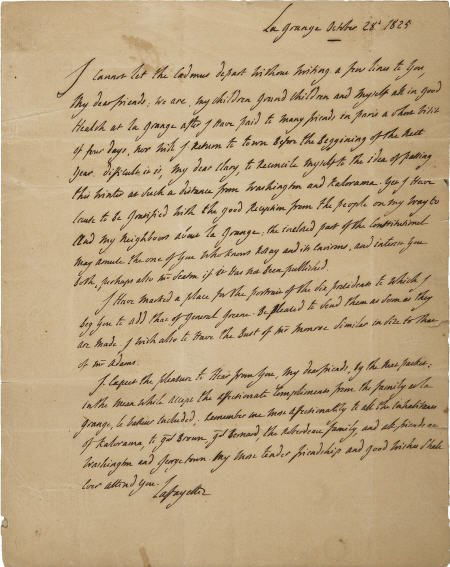 La Grange October 28t 1825
I cannot let the Cadmus depart without writing a few lines to you,
My dear friends; we are, my children Grand Children and myself all in good
Health at La Grange after I Have paid to many friends in paris a short visit
of four days, nor will I Return to town Before the Beggining of the Next
Year. difficult it is, my dear Clary to Reconcile Myself to the idea of passing
this Winter at such a distance from Washington and Kalorama. Yet I Have
Cause to be Gratified with the good Reception from the people on my Way to
and my Neighbours about La Grange; the inclosed part of the Constitutionel
may amuse the one of you Who Knows Rosay and its Environs, and interest you
both, perhaps also mr Seaton if it Has not been published.
I Have marked a place for the portraits of the Six presidents to Which I
Beg you to add that of General Greene. Be pleased to Send them as soon as they
are made. I wish also to Have the Bust of mr Monroe Similar in Size to that
of mr Adams.
I Expect the pleasure to Hear from You, my dear friends, by the Next packet;
in the mean While accept the affectionate Compliments from the family at La
Grange, Le Vasseur included. remember me most affectionately to all the inhabitants
of Kalorama to gal Brown, gal Bernard the family and all friends at
Washington and Georgetown My most tender friendship and good Wishes Shall
Ever attend You.
Lafayette